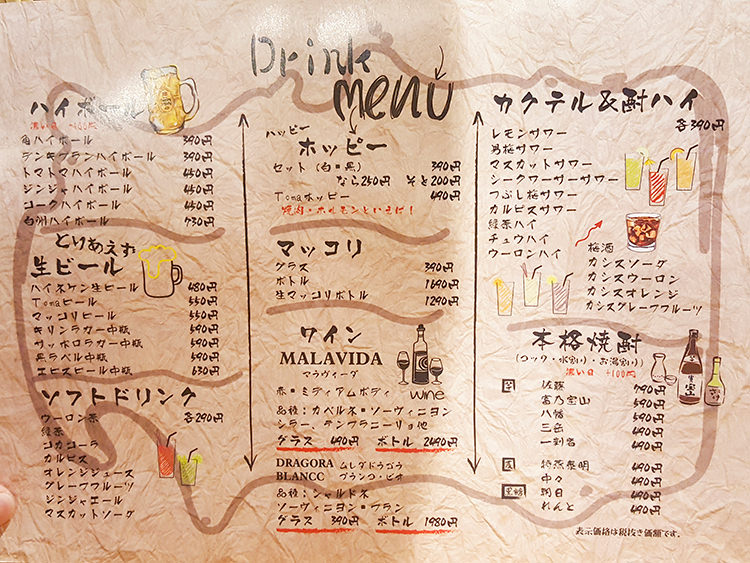 Drink
MENU
ハイボール
濃い目 +100円
角ハイボール 390円
デンキブランハイボール 390円
トマトマハイボール 450円
ジンジャハイボール 450円
コークハイボール 450円
白州ハイボール 730円
とりあえず
生ビール
ハイネケン生ビール 480円
Tomaビール 550円
マッコリビール 550円
キリンラガー中瓶 590円
サッポロラガー中瓶 590円
黒ラベル中瓶 590円
エビスビール中瓶 630円
ソフトドリンク
ウーロン茶 各290円
緑茶
コカコーラ
カルピス
オレンジジュース
グレープフルーツ
ジンジャエール
マスカットソーダ
ハッピー
ホッピー
セット (白・黒) 390円
なら250円 そと200円
Tomaホッピー 490円
焼肉・ホルモンといえば!
マッコリ
グラス 390円
ボトル 1690円
生マッコリボトル 1290円
ワイン
MALAVIDA
マラヴィーダ
wine
赤・ミディアムボディ
品種:カベルネ・ソーヴィニヨン
シラー、テンプラニーリョ他
グラス 490円 ボトル 2490円
DRAGORA ムレダドラゴラ
BLANCC ブランコ・ビオ
品種:シャルドネ
ソーヴィニヨン・ブラン
グラス 390円 ボトル 1980円
カクテル&酎ハイ
各390円
レモンサワー
男梅サワー
マスカットサワー
シークワーサーサワー
つぶし梅サワー
カルピスサワー
緑茶ハイ
チュウハイ
ウーロンハイ
梅酒
カシスソーダ
カシスウーロン
カシスオレンジ
カシスグレープフルーツ
本格焼酎
(ロック・水割り・お湯割り)
濃い目 +100円
芋 佐藤 790円
富乃宝山 590円
八幡 590円
三岳 490円
一刻者 490円
麦 特蒸泰明 490円
中々 490円
黒糖 朝日 490円
れんと 490円
表示価格は税抜き価額です。